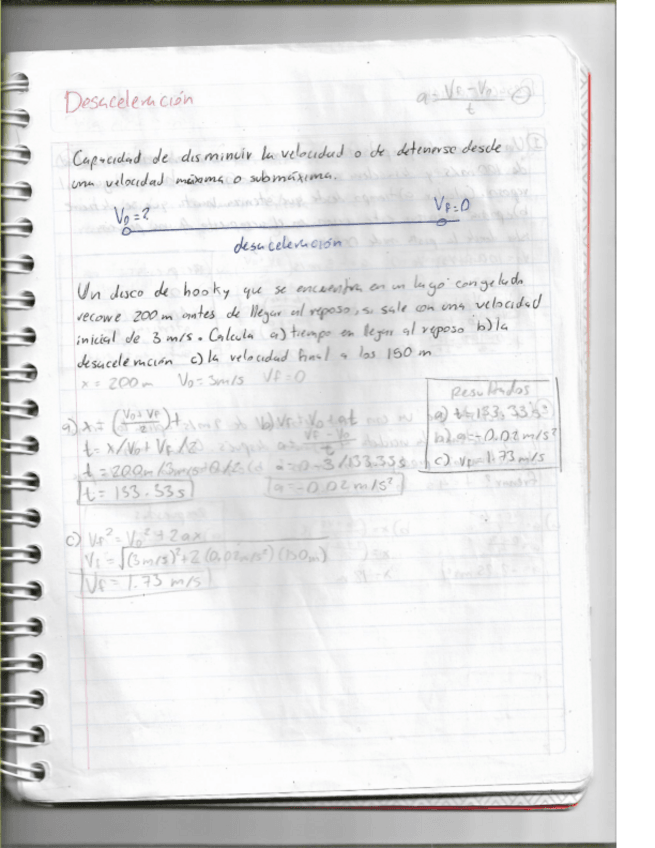 Desaceleración
a = Vf - Vo
t
Capacidad de disminuir la velocidad o de detenerse desde
una velocidad máxima o submáxima.
Vo=?
Vf=0
desaceleración
Un disco de hooky que se encuentra en un lago congelado
recorre 200 m antes de llegar al reposo, si sale con una velocidad
inicial de 3 m/s. Calcula a) tiempo en llegar al reposo b) la
desaceleración c) la velocidad final a los 150 m
x = 200 m Vo = 3 m/s Vf = 0
Resultados
a) t=133.33s
b) a=-0.02 m/s²
c) Vf=1.73 m/s
a) x = (Vo + Vf / 2) t
t = x/Vo + Vf /2
b)
a = Vf - Vo / t
t = 200m /3m/s+0/2
a = 0-3/133.33s
t = 133.33s
a = -0.02 m/s²
c) Vf² = Vo² + 2ax
Vf = √(3m/s)²+2(0.02m/s²)(150m)
Vf = 1.73 m/s